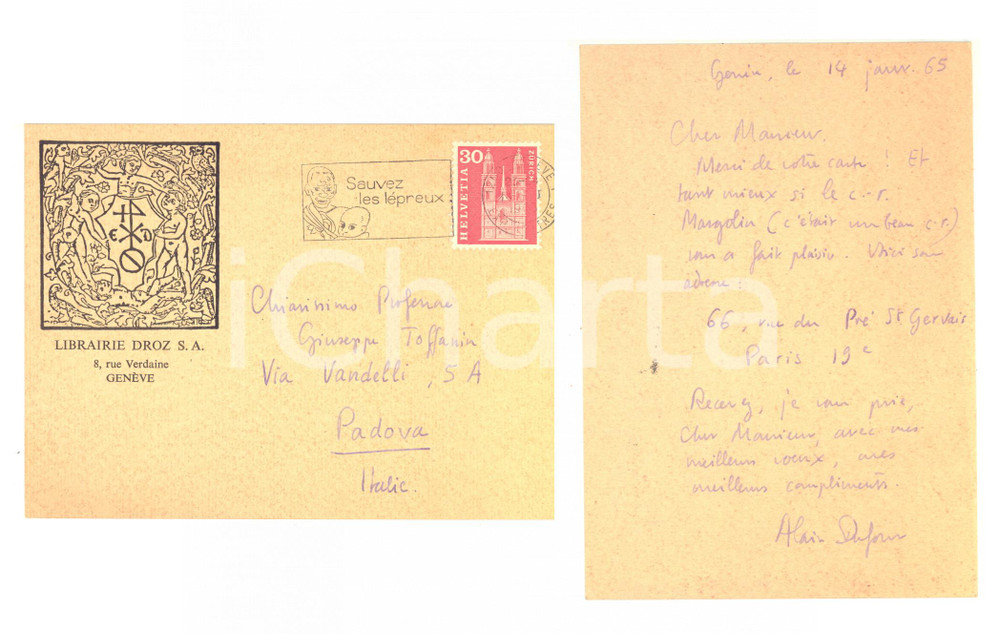 Sauvez
les lépreux
30
HELVETIA
ZÜRICH
LIBRAIRIE DROZ S. A.
8, rue Verdaine
GENÈVE
Chiarissimo Professore
Giuseppe Toffanin
Via Vandelli, 5 A
Padova
Italie.
iCharta
Genève, le 14 janv. 65
Cher Monsieur.
Merci de votre carte ! Et
tant mieux si le c.-r.
Margolin (c'était un beau c.-r.)
vous a fait plaisir. Voici son
adresse :
66, rue du Pré St. Gervais
Paris 19e
Recevez, je vous prie,
Cher Monsieur, avec mes
meilleurs voeux, mes
meilleurs compliments.
Alain Dufour